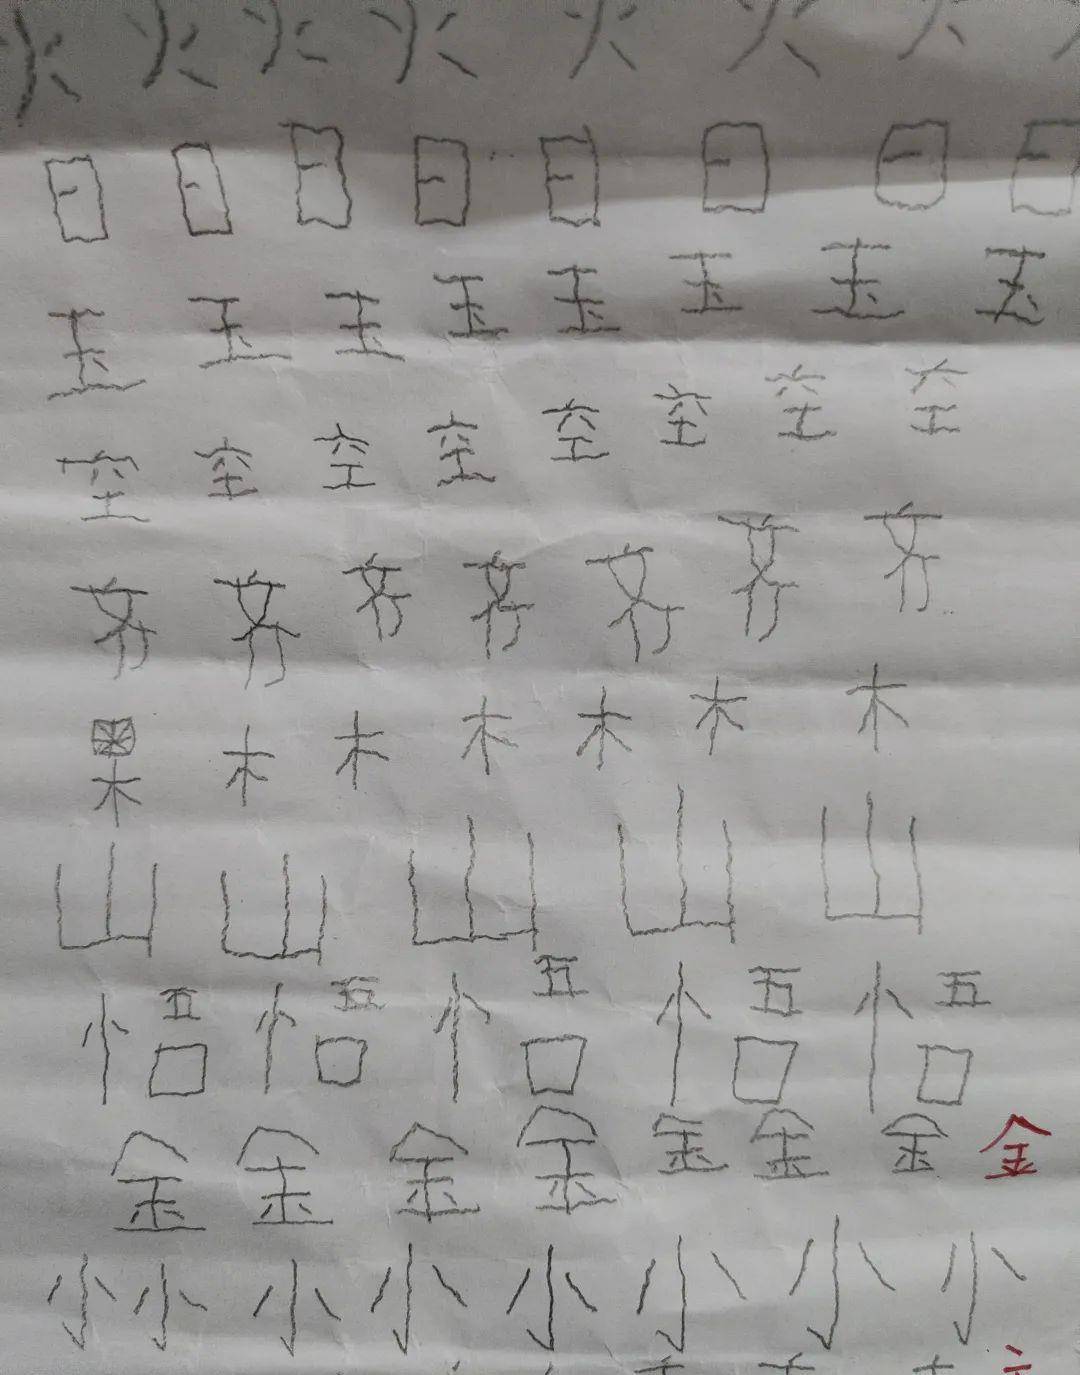 火 火 火 火 火 火 火
日 日 日 日 日 日 日 日
玉 玉 玉 玉 玉 玉 玉 玉
空 空 空 空 空 空 空 空
齐 齐 齐 齐 齐 齐 齐
果 木 木 木 木 木 木
山 山 山 山 山
悟 悟 悟 悟 悟
金 金 金 金 金 金 金 金
小 小 小 小 小 小 小 小